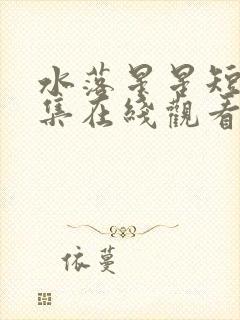 水落星星短
集在綫觀看
依蔓